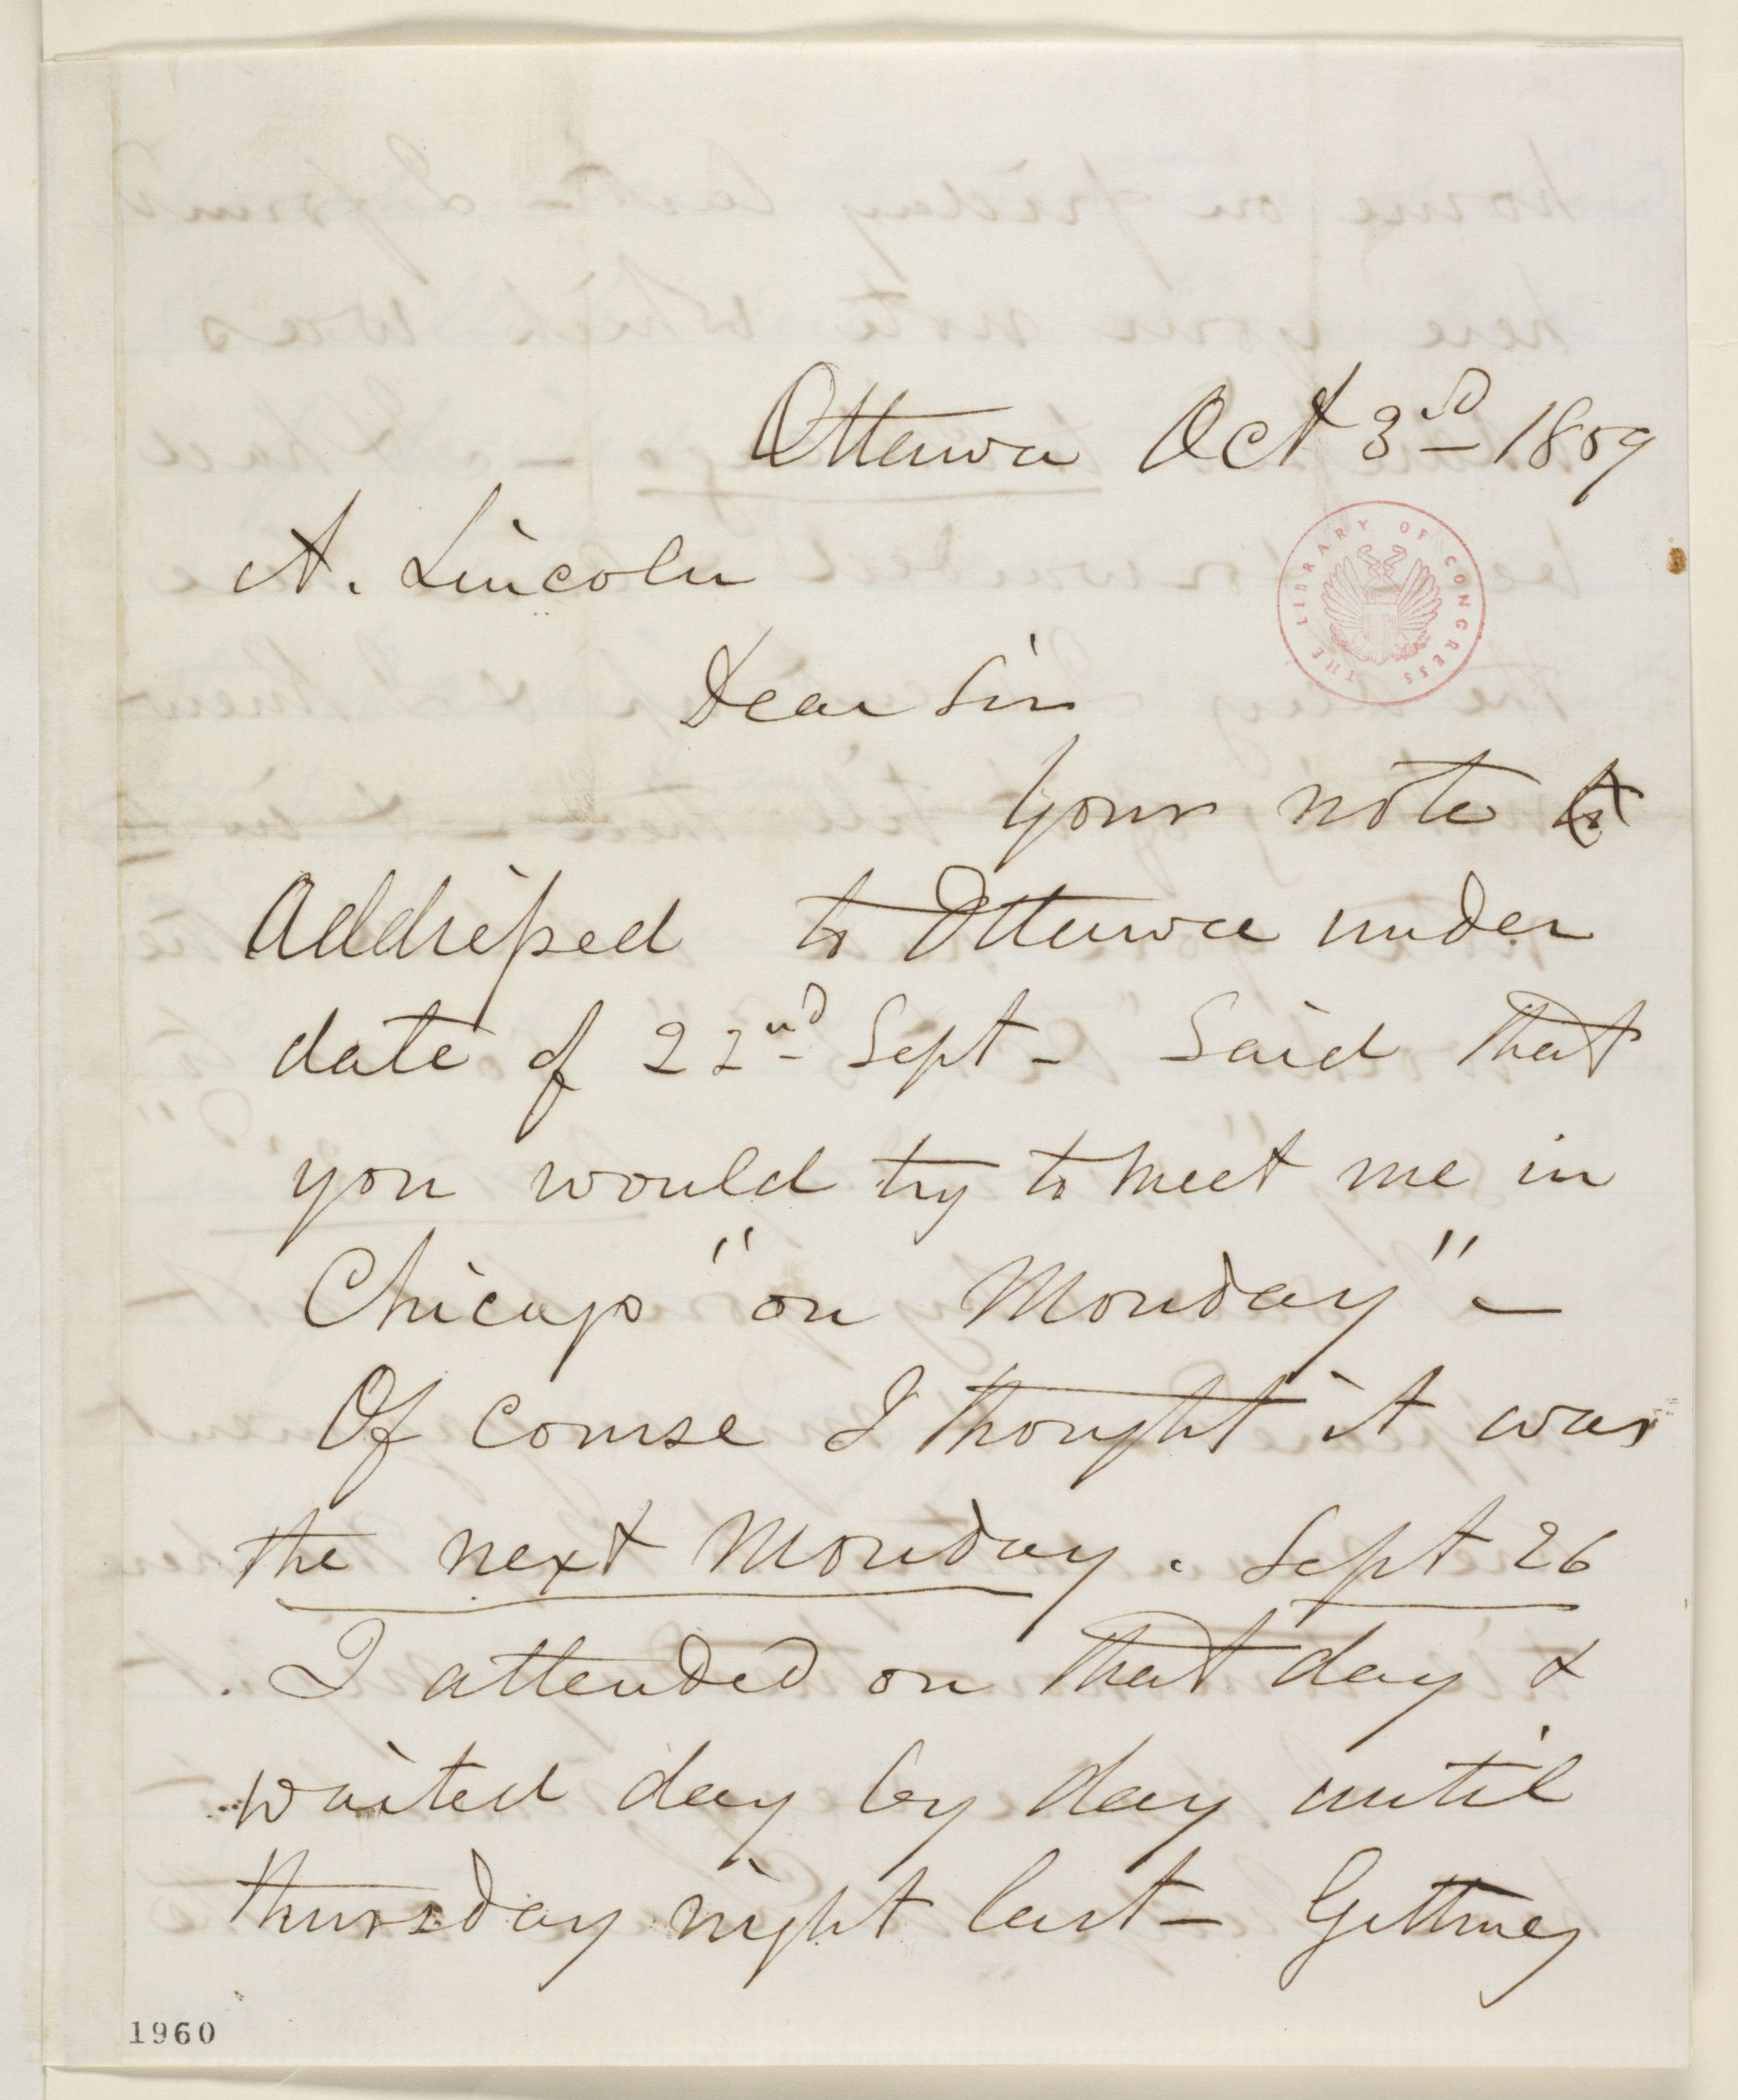 Ottawa Oct 3rd 1859
THE LIBRARY OF CONGRESS
A. Lincoln
Dear Sir
Your note to
Addressed to Ottawa under
date of 22nd Sept - Said that
you would try to meet me in
Chicago "on Monday" -
Of course I thought it was
the next Monday. Sept 26
I attended on that day &
waited day by day until
thursday night last - Getting
1960